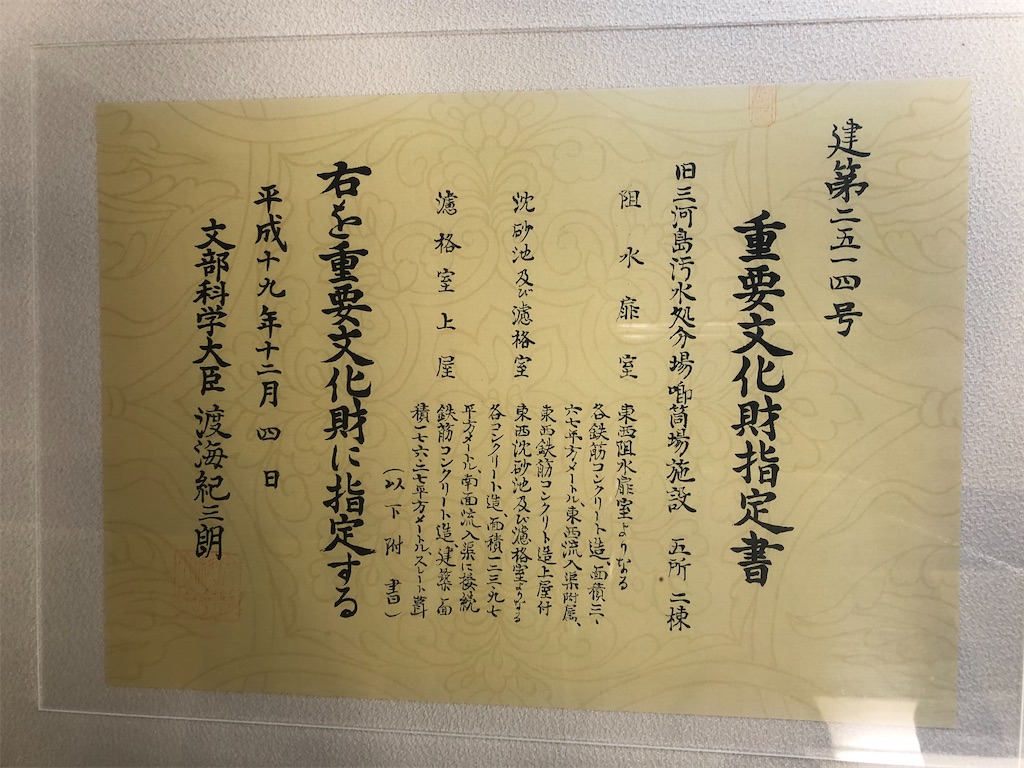 建第二五一四号
重要文化財指定書
旧三河島汚水処分場喞筒場施設 五所 二棟
阻水扉室 東西阻水扉室よりなる
各鉄筋コンクリート造、面積三、
六七平方メートル、東西流入渠附属、
東西鉄筋コンクリート造上屋付
沈砂池及び濾格室 東西沈砂池及び濾格室よりなる
各コンクリート造、面積一二三・九七
平方メートル、南面流入渠に接続
濾格室上屋 鉄筋コンクリート造、建築面
積一七六・二七平方メートル、スレート葺
(以下附書)
右を重要文化財に指定する
平成十九年十二月四日
文部科学大臣 渡海紀三朗